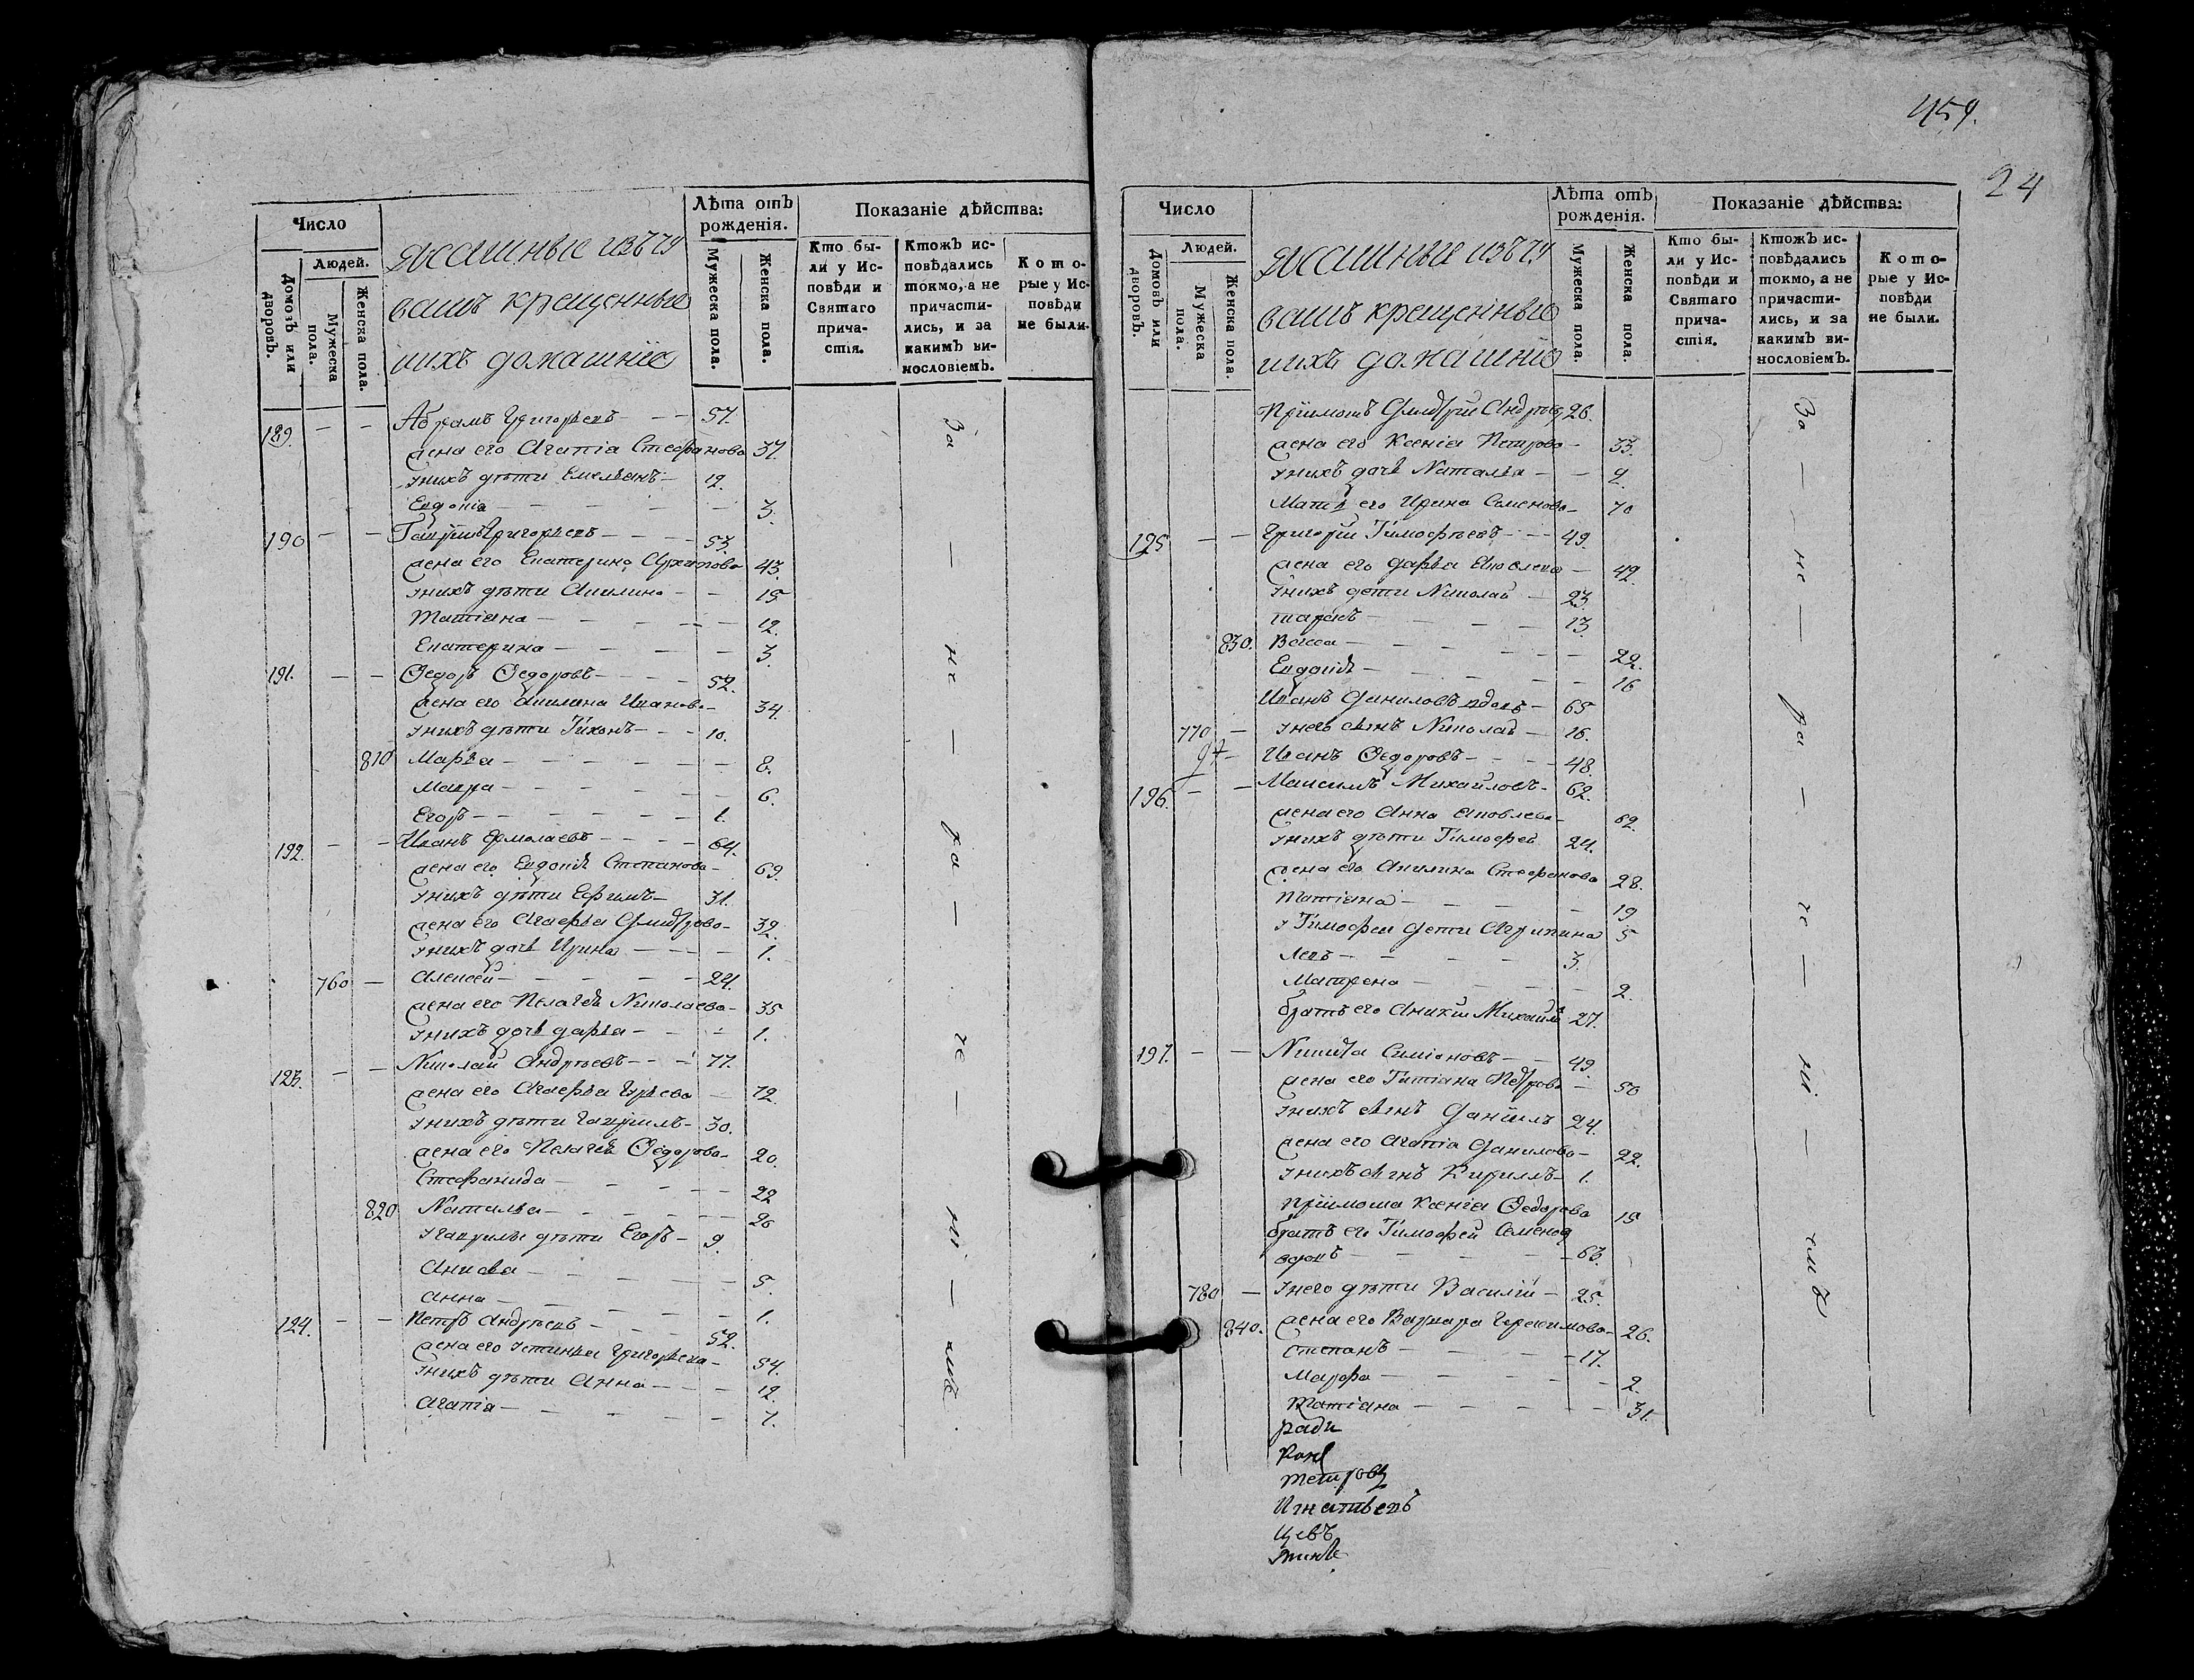 Число
Людей.
Домовъ или дворовъ.
Мужеска пола.
Женска пола.
ясашные изъ чу
вашъ крещенные
и ихъ домашніе
Лѣта отъ рожденія.
Мужеска пола.
Женска пола.
Показаніе дѣйства:
Кто бы-
ли у Ис-
повѣди и
Святаго
прича-
стія.
Ктожъ ис-
повѣдались
токмо, а не
причасти-
лись, и за
какимъ ви-
нословіемъ.
Кото-
рые у Ис-
повѣди
не были.
189. — — Абрамъ Григорьевъ — — 57.
жена его Агапія Стефанова 37.
у нихъ дѣти Емельянъ — 12.
Евдокія — 3.
190 — — Григорьевъ — 53.
жена его Екатерина Архипова 43.
у нихъ дѣти Акилина — 15
Татіана — 12.
Екатерина — 3.
191. — — Ѳедоръ Ѳедоровъ — 52.
жена его Акилина Иванова — 34.
у нихъ дѣти Тихонъ — 10.
810 Марья — 8.
Мавра — 6.
Егоръ — 1.
192. — — Иванъ Ермолаевъ — 64.
жена его Евдокія Степанова — 69.
у нихъ дѣти Ефимъ — 31.
жена его Агафья Дмитрова — 32.
у нихъ дочь Ирина — 1.
760 — Алексей — 24.
жена его Пелагея Николаева — 35
у нихъ дочь дарья — 1.
123. — — Николай Андреевъ — 77.
жена его Агафья Гурьева — 72.
у нихъ дѣти Гаврилъ — 30.
жена его Пелагея Ѳедорова — 20.
Стефанида — 22
820 Наталья — 20
у Гаврилы дѣти Егоръ — 9.
Анисья — 5.
Анна — 1.
124. — — Петръ Андреевъ — 52.
жена его Устинья Григорьева — 54.
у нихъ дѣти Анна — 12.
Агапія — 7.
За — не — ра — че — ні — емъ.
459.
24
Число
Людей.
Домовъ или дворовъ.
Мужеска пола.
Женска пола.
ясашные изъ чу
вашъ крещенные
и ихъ домашніе
Лѣта отъ рожденія.
Мужеска пола.
Женска пола.
Показаніе дѣйства:
Кто бы-
ли у Ис-
повѣди и
Святаго
прича-
стія.
Ктожъ ис-
повѣдались
токмо, а не
причасти-
лись, и за
какимъ ви-
нословіемъ.
Кото-
рые у Ис-
повѣди
не были.
Пріимошъ Дмитрій 26.
жена его Ксенія Петрова — 33.
у нихъ дочь Наталья — 9.
Мать его Ирина Семенова — 70
125 — — Григорій Тимофеевъ — 49.
жена его дарья Яковлева — 42
у нихъ дети Николай — 23.
тарасъ — 13
830. Васса — 22.
Евдокія — 16
Иванъ Даниловъ вдовъ — 65
770 — у него сынъ Николай — 16.
97 — Иванъ Ѳедоровъ — 48.
196. — — Максимъ Михайловъ — 62.
жена его Анна Яковлева — 62.
у нихъ дѣти Тимофей 24.
жена его Акилина Стефанова 28.
Татіана — 19
у Тимофея дети Агрипина 5
Левъ — 3.
Матрена — 2.
братъ его Аникій 27.
197. — — Никита Симіоновъ — 49.
жена его Татіана Петрова — 50
у нихъ сынъ Даніилъ 24.
жена его Агапія Данилова — 22.
у нихъ сынъ Кирилъ — 1.
пріимоша Ксенія Ѳедорова 15
братъ его Тимофей Семенов
— 63.
780 — у него дѣти Василій — 25.
840. жена его Варвара Герасимова — 26.
Степанъ — 17.
Марфа — 2.
Татіана — 31.
За — не — ра — че — ні — емъ
Игнатьевъ